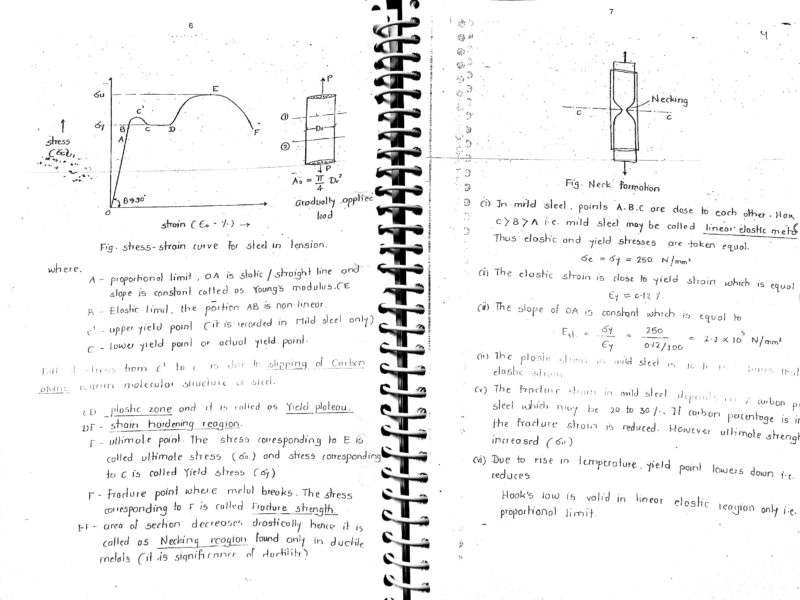 6
σu
σy
stress
E
C'
B
C
D
A
F
0
θ=90°
strain (ε₀ - %) →
Fig. stress-strain curve for steel in tension.
P
①
D₀
②
P
A₀ = π/4 D₀²
Gradually applied
load
where.
A - proportional limit, OA is static / straight line and
slope is constant called as Young's modulus. CE
B - Elastic limit, the portion AB is non-linear.
c' - upper yield point (it is recorded in Mild steel only)
C - lower yield point or actual yield point.
stress from C' to c is due to slipping of Carbon
atoms molecular structure of steel.
CD plastic zone and it is called as Yield plateau.
DE - strain hardening reagion.
E - ultimate point. The stress corresponding to E is
called ultimate stress (σu) and stress corresponding
to C is called Yield stress (σy)
F - fracture point where metal breaks. The stress
corresponding to F is called Fracture strength.
EF - area of section decreases drastically hence it is
called as Necking reagion found only in ductile
metals (it is significance of ductility)
7
4
Necking
c
c
Fig. Neck formation
(i) In mild steel, points A.B.C are close to each other. How
C > B > A i.e. mild steel may be called linear elastic
Thus elastic and yield stresses are taken equal.
σe = σy = 250 N/mm²
(ii) The elastic strain is close to yield strain which is equal
εy = 0.12 %
(iii) The slope of OA is constant which is equal to
Est. = σy / εy = 250 / 0.12/100 = 2.1 × 10⁵ N/mm²
(iv) The plastic strain in mild steel is 10 to times that
elastic strain.
(v) The fracture strain in mild steel depends on % carbon
steel which may be 20 to 30 %. If carbon percentage is in
the fracture strain is reduced. However ultimate strengt
increased (σu)
(vi) Due to rise in temperature, yield point lowers down i.e.
reduces
Hook's law is valid in linear elastic reagion only i.e.
proportional limit.